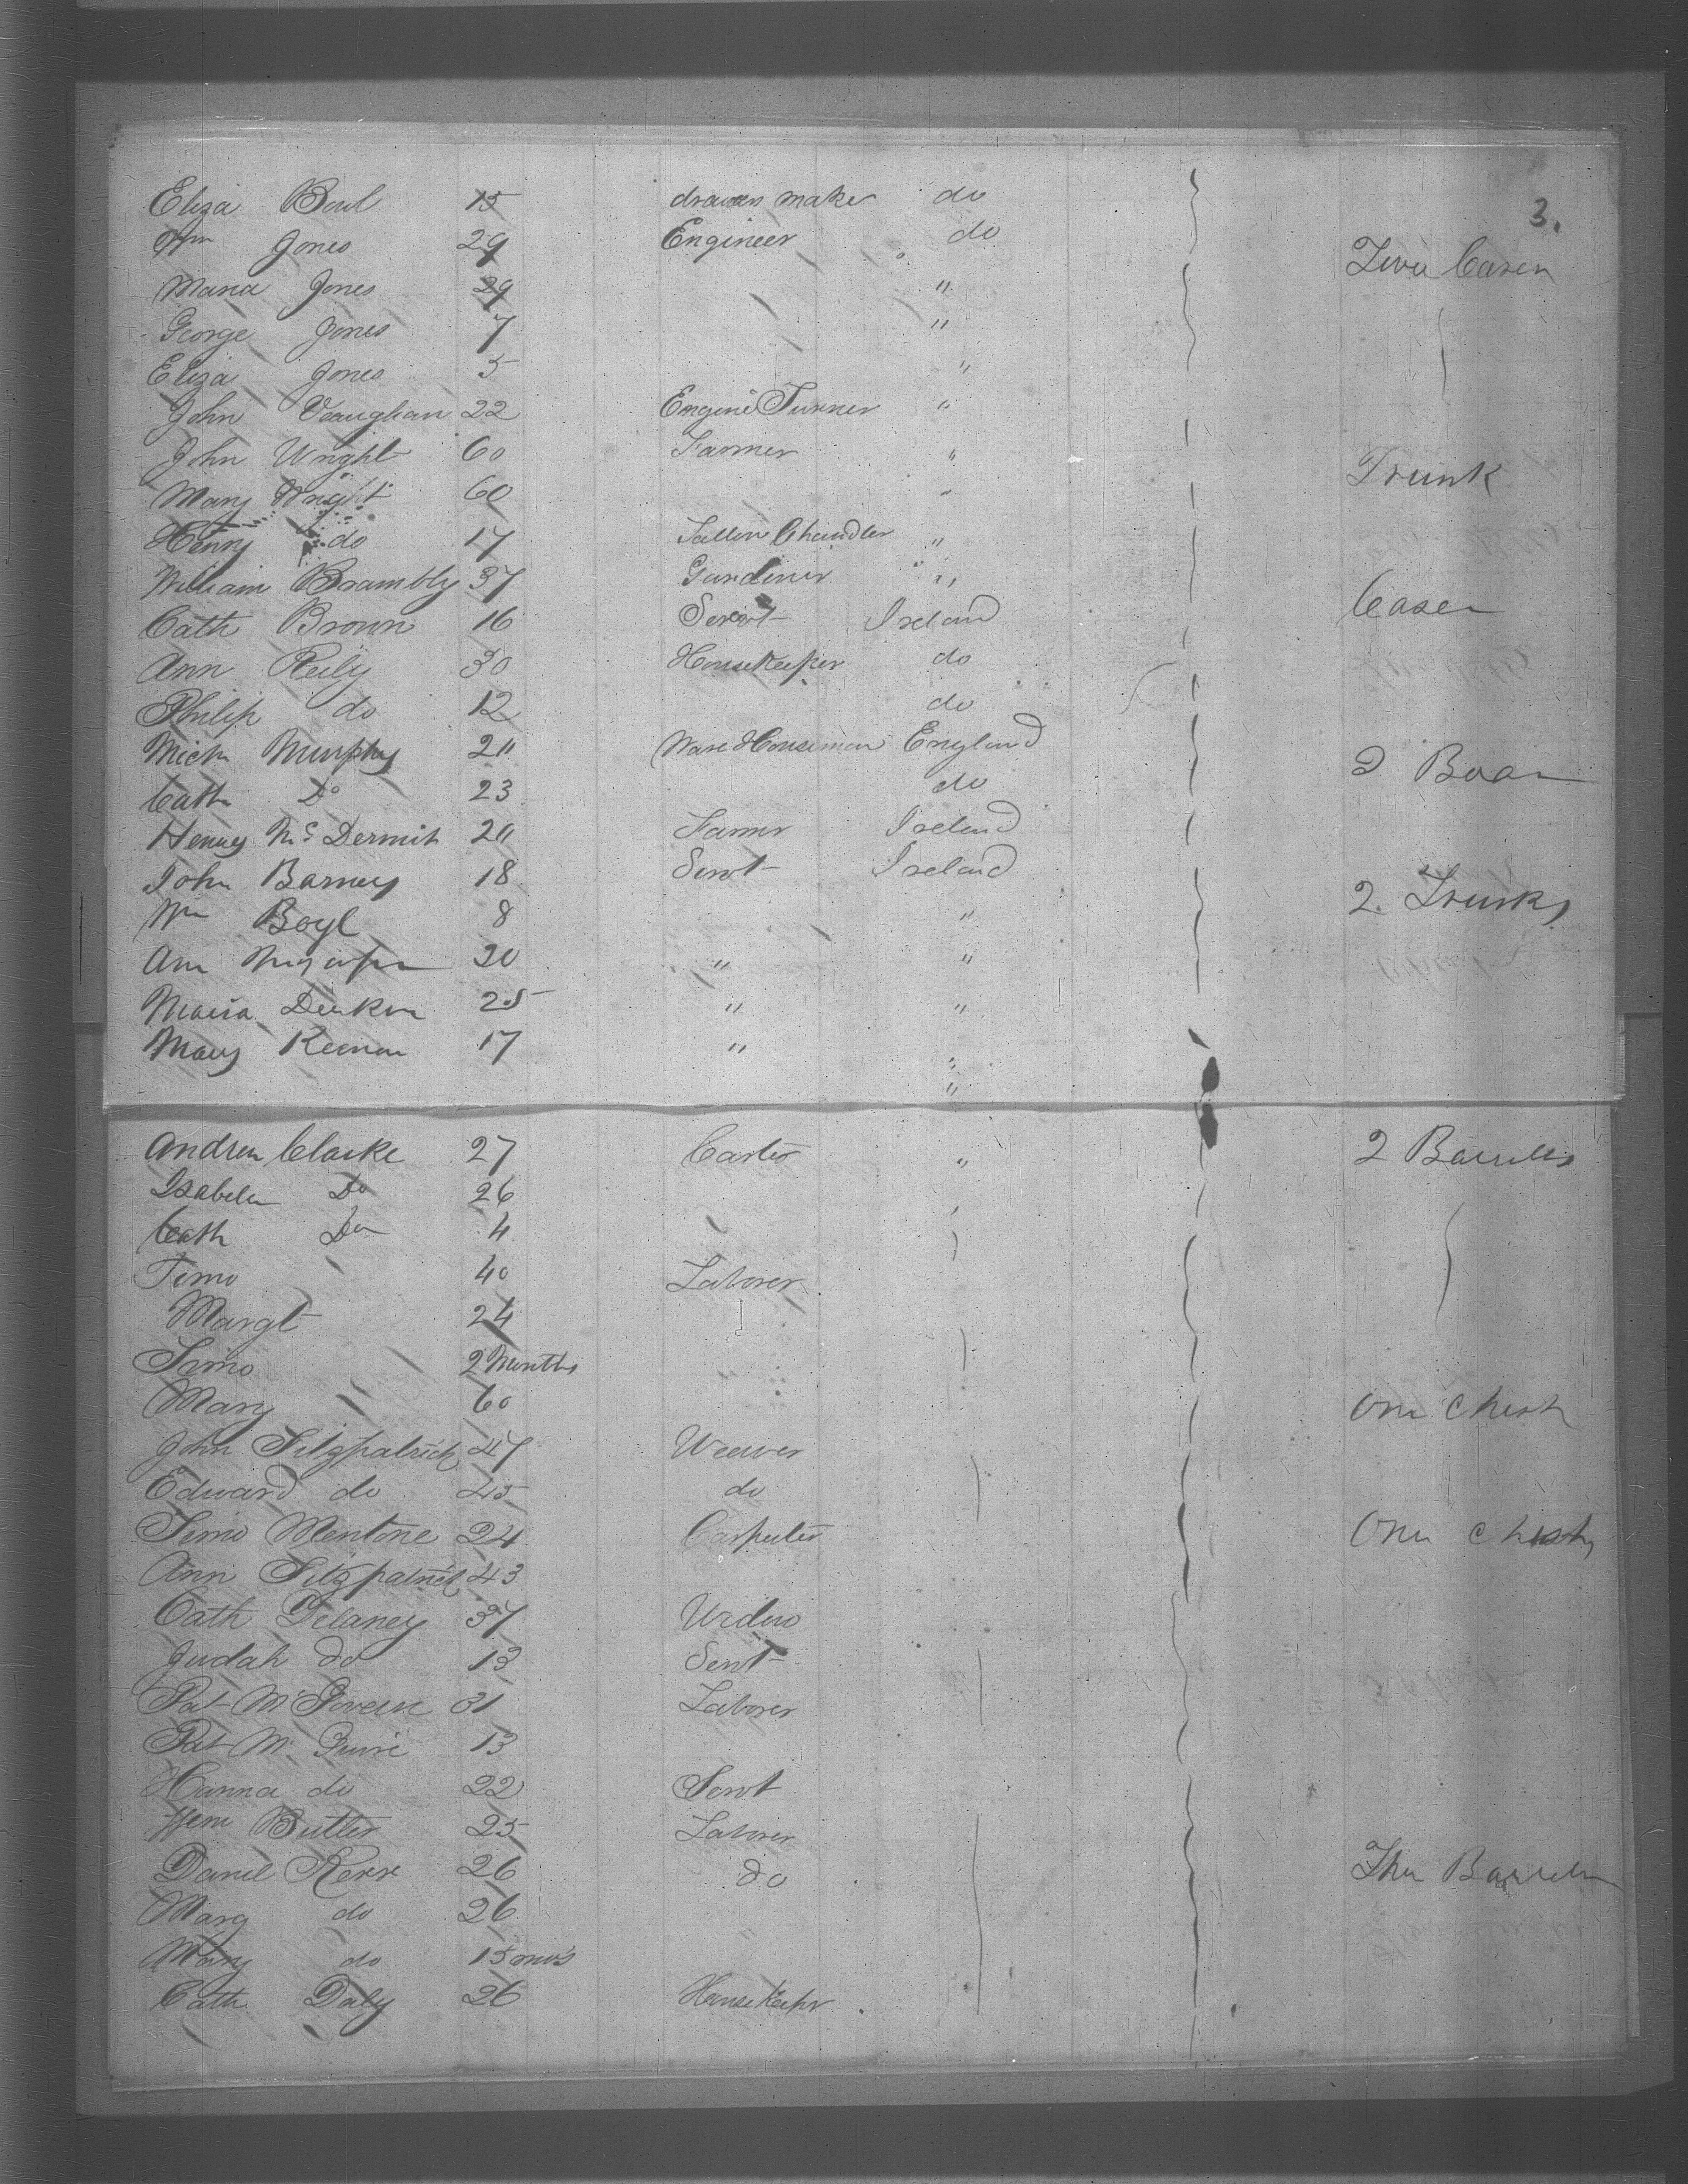 3.
Eliza Boul 15 drawes maker do
Wm Jones 29 Engineer do
Two Cases
Maria Jones 29 "
George Jones 7 "
Eliza Jones 5 "
John Vaughan 22 Engine Turner "
John Wright 60 Farmer "
Trunk
Mary Wright 60 "
Henry do 17 Tallow Chandler "
William Brambly 37 Gardiner "
Cath Brown 16 Servt Ireland
Cases
Ann Reily 30 Housekeeper do
Philip do 12 do
Mich Murphy 20 Ware Houseman England
2
Cath Do 23 do
Henry McDermit 20 Farmr Ireland
John Barney 18 Servt Ireland
2 Trunks
Wm Boyl 8 "
Ann 20 " "
Maria 25 " "
Mary Keenan 17 " "
"
Andrew Clarke 27 Carter "
2 Barrells
Isabela Do 26
Cath Do 4
Timo 40 Laborer
Margt 24
Timo 2 Months
Mary 60
One Chest
John Fitzpatrick 47 Weaver
Edward do 45 do
Timo Mentone 24 Carpenter
One Chest
Ann Fitzpatrick 43
Cath Delaney 37 Widow
Judah do 13 Servt
Pat 31 Laborer
Pat McGuire 13
Hanna do 22 Servt
Wm Butler 25 Laborer
Daniel Kerr 26 do
Marg do 26
Mary do 15 mos
Cath Daly 26 Housekeepr